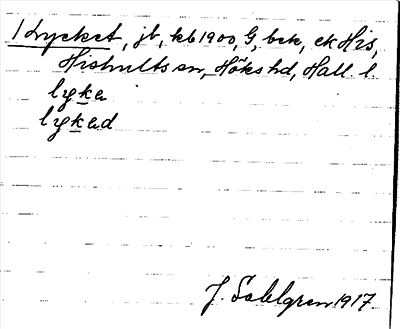 / Lycket, jb, kb 1900, G, bek, ek His,
Hishults sn, Höks hd, Hall. l.
lyke
lyked
J. Sahlgren 1917